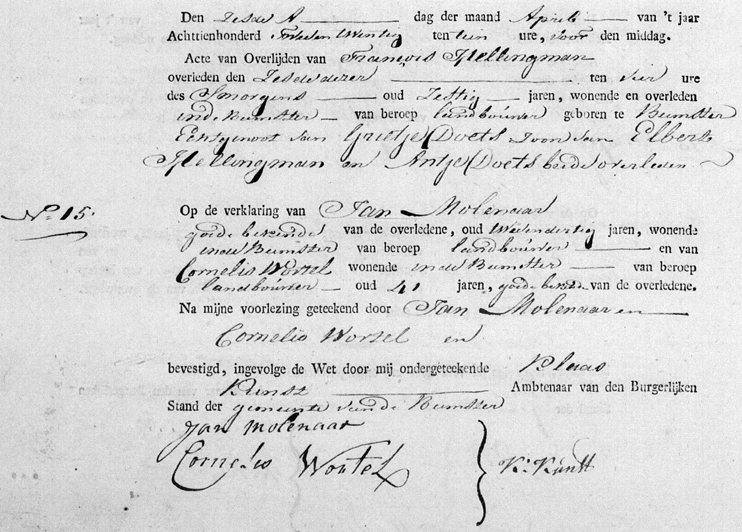 Den Zesde dag der maand April van 't jaar
Achttienhonderd en Twintig ten tien ure, voor den middag.
Acte van Overlijden van François Hellingman
overleden den Zesde dezer ten vier ure
des Smorgens oud Zestig jaren, wonende en overleden
in de Beemster van beroep landbouwer geboren te Beemster
Echtgenoot van Grietje Doets Zoon van Elbert
Hellingman en Antje Doets beide overleden
N.º 15. Op de verklaring van Jan Molenaar
goede bekende van de overledene, oud jaren, wonende
in de Beemster van beroep landbouwer en van
Cornelis Wortel wonende in de Beemster van beroep
landbouwer oud 41 jaren, goede bekende van de overledene.
Na mijne voorlezing geteekend door Jan Molenaar en
Cornelis Wortel en
bevestigd, ingevolge de Wet door mij ondergeteekende Klaas
Kunst Ambtenaar van den Burgerlijken
Stand der gemeente van de Beemster
Jan Molenaar
Cornelis Wortel
K: Kunst